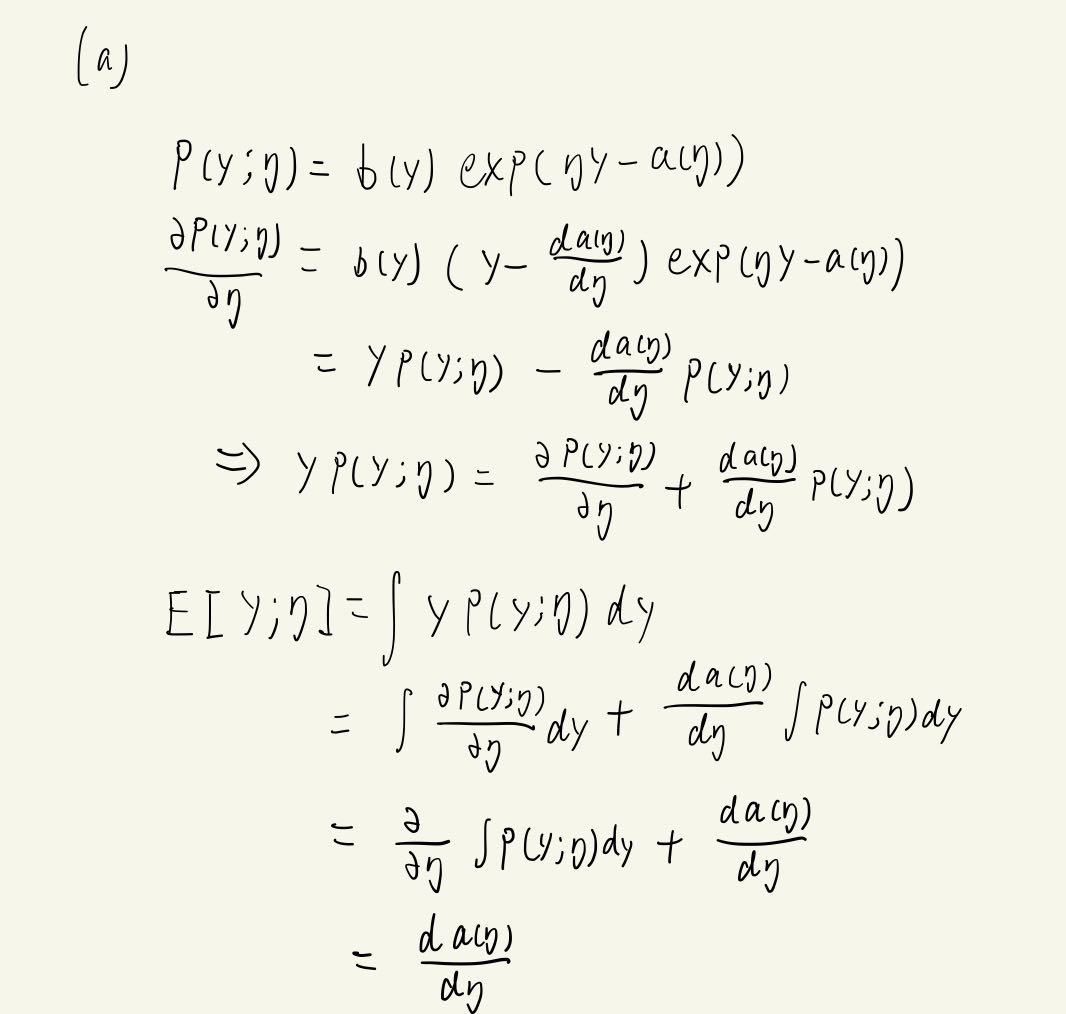 (a)
P(y;η) = b(y) exp(ηy − a(η))
∂P(y;η)/∂η = b(y) (y − da(η)/dη) exp(ηy − a(η))
= y P(y;η) − da(η)/dη P(y;η)
⇒ y P(y;η) = ∂P(y;η)/∂η + da(η)/dη P(y;η)
E[y;η] = ∫ y P(y;η) dy
= ∫ ∂P(y;η)/∂η dy + da(η)/dη ∫ P(y;η) dy
= ∂/∂η ∫ P(y;η) dy + da(η)/dη
= da(η)/dη